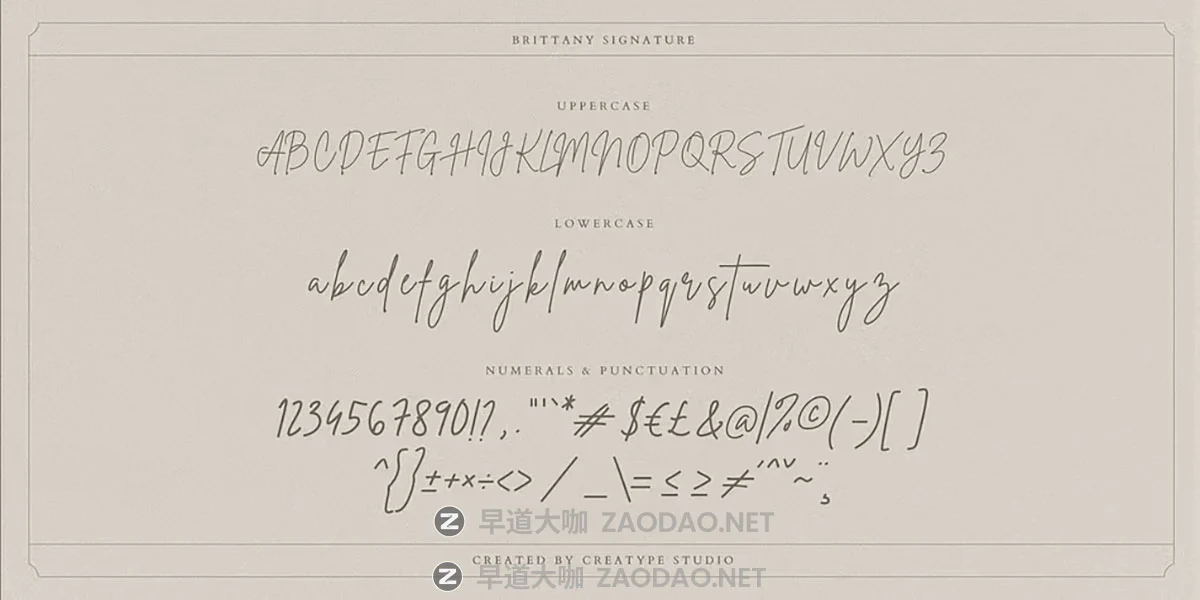 BRITTANY SIGNATURE
UPPERCASE
ABCDEFGHIJKLMNOPQRSTUVWXYZ
LOWERCASE
abcdefghijklmnopqrstuvwxyz
NUMERALS & PUNCTUATION
1234567890!?,. "''`*# $€£ &@|%©(-)[ ]
^{}±+×÷<> / _ \= ≤ ≥ ≠ ´^ˇ ~ ¨ ¸
Z 早道大咖 ZAODAO.NET
CREATED BY CREATYPE STUDIO
Z 早道大咖 ZAODAO.NET